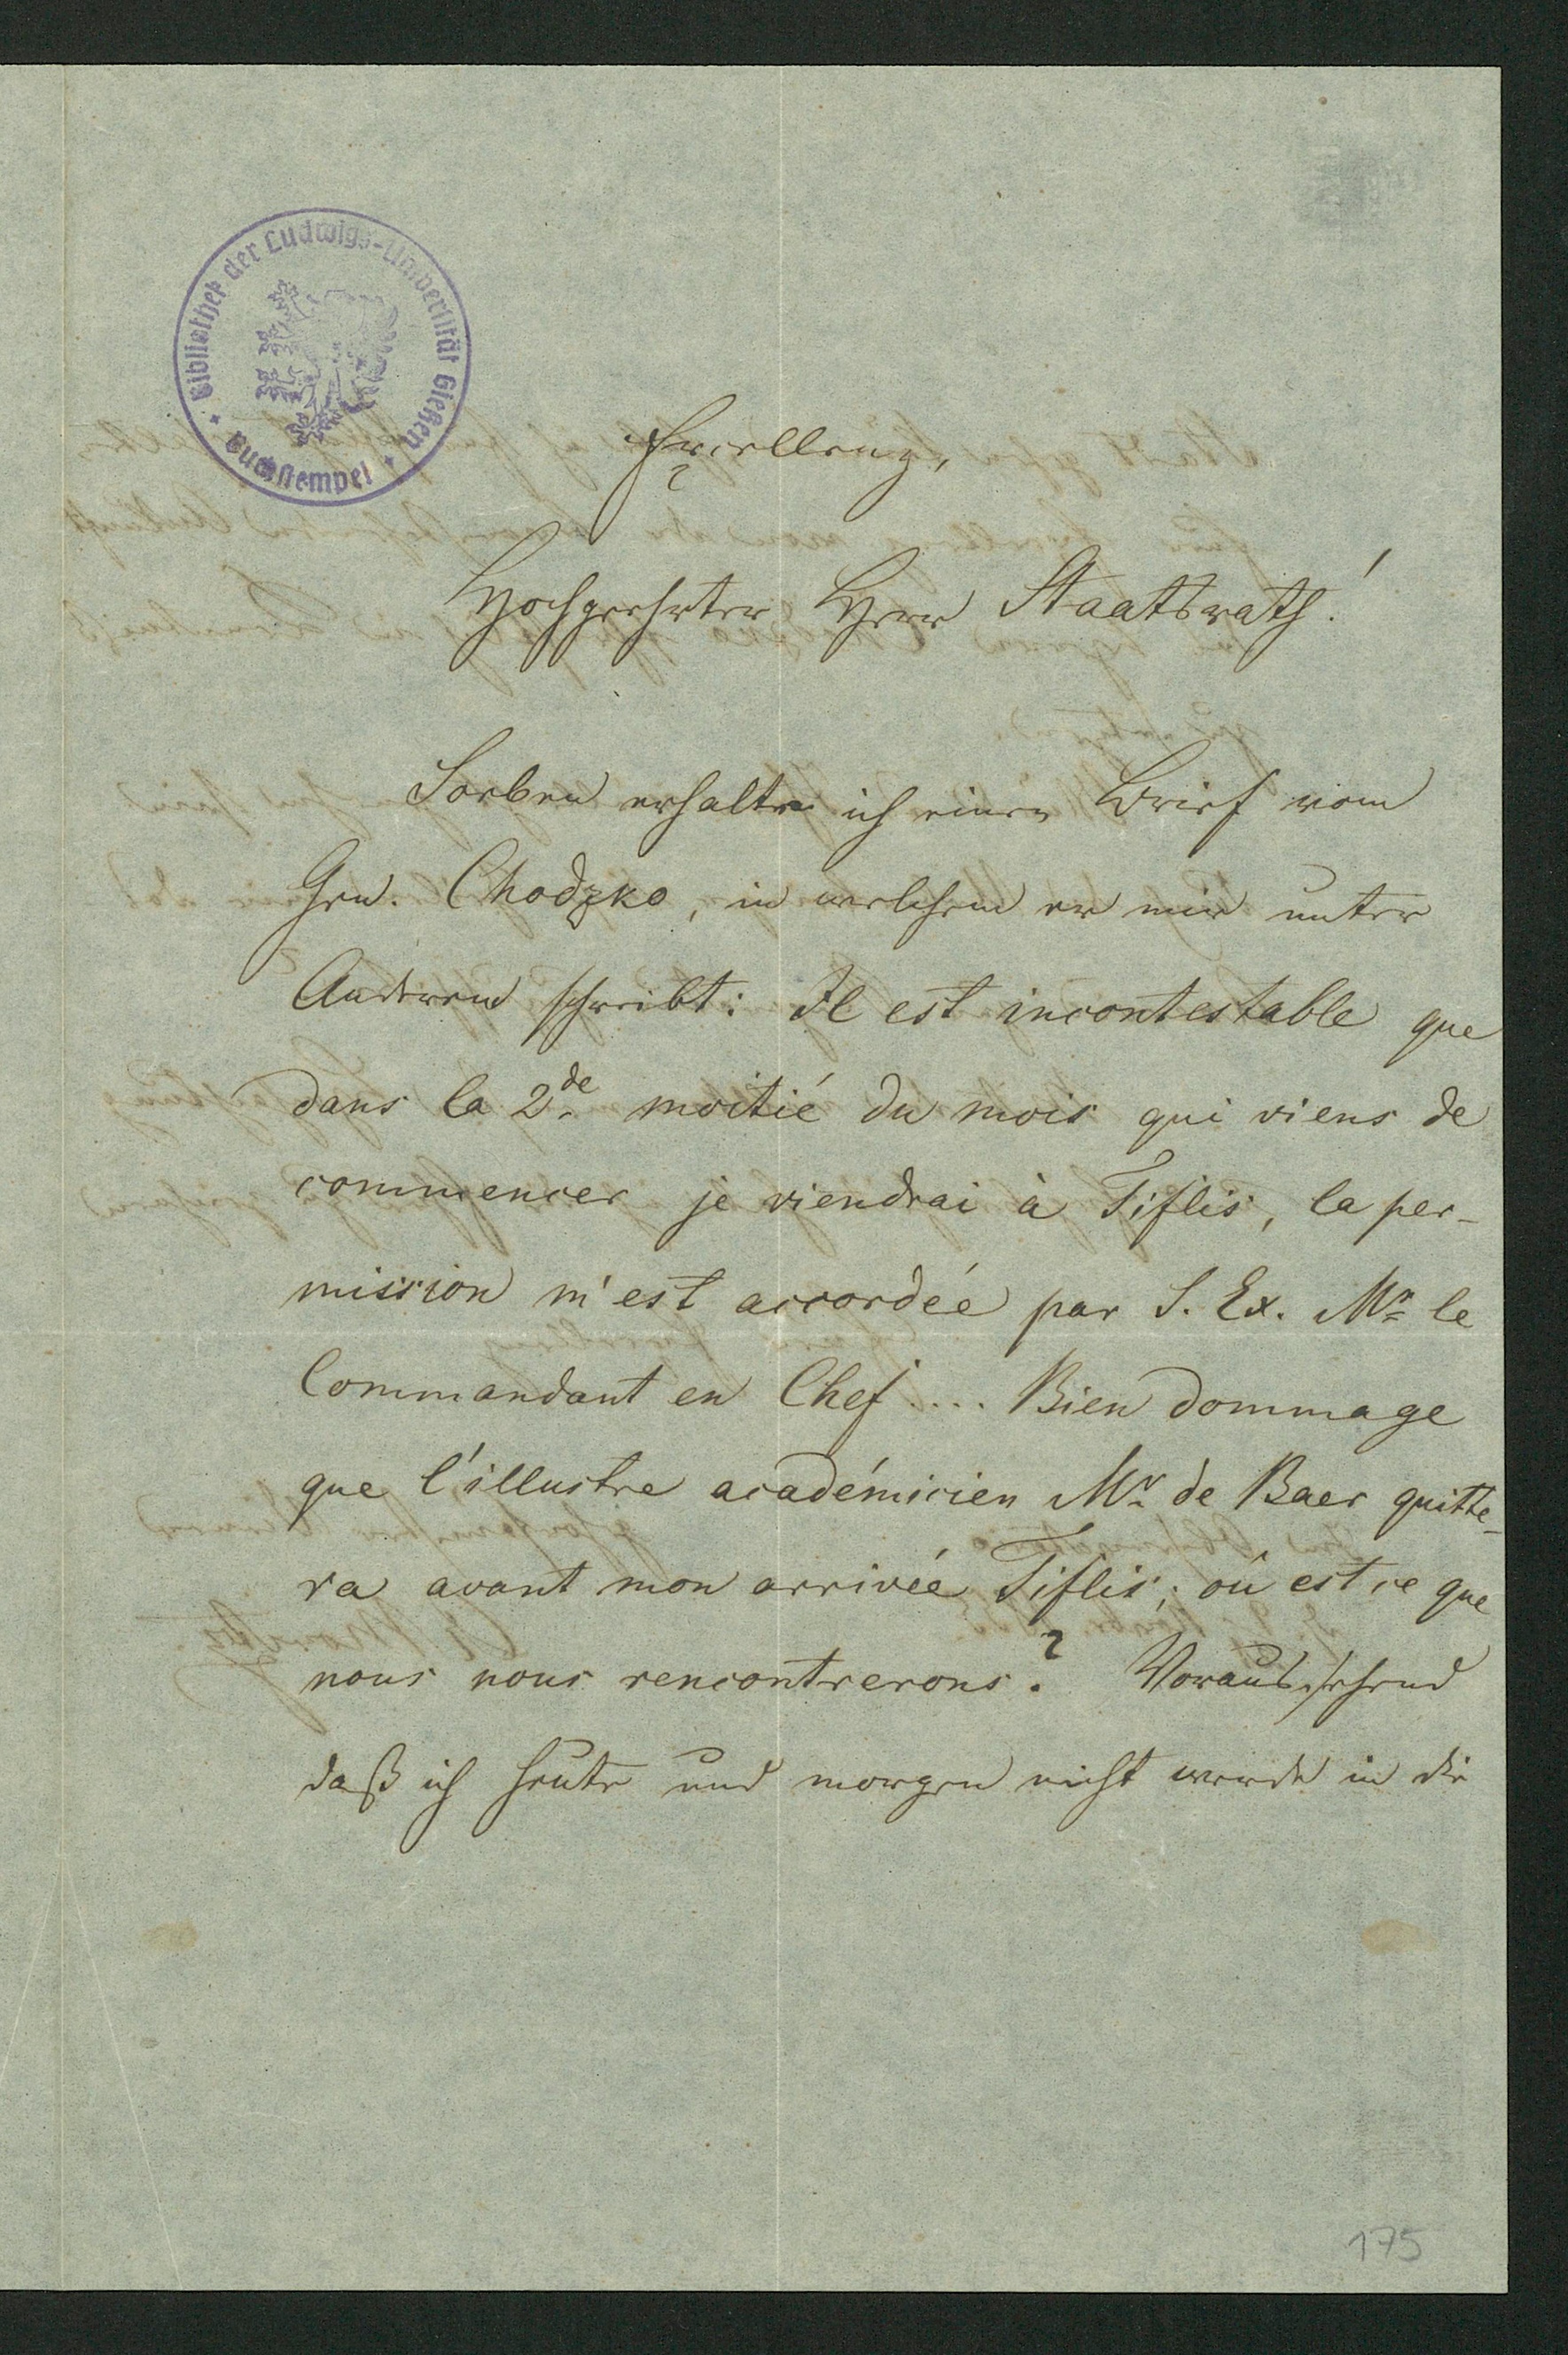 Bibliothek der Ludwigs-Universität Gießen
Buchstempel
Excellenz,
Hochgeehrter Herr Staatsrath!
Soeben erhalte ich einen Brief vom
Gen. Chodzko, in welchem er mir unter
Anderem schreibt: Il est incontestable que
dans la 2de moitié du mois qui viens de
commencer je viendrai à Tiflis, la per-
mission m'est accordée par S. Ex. Mr le
Commandant en Chef.... Bien dommage
que l'illustre académicien Mr de Baer quitte-
ra avant mon arrivée Tiflis; où est ce que
nous nous rencontrerons? Voraussehend
daß ich heute und morgen nicht werde in die
175